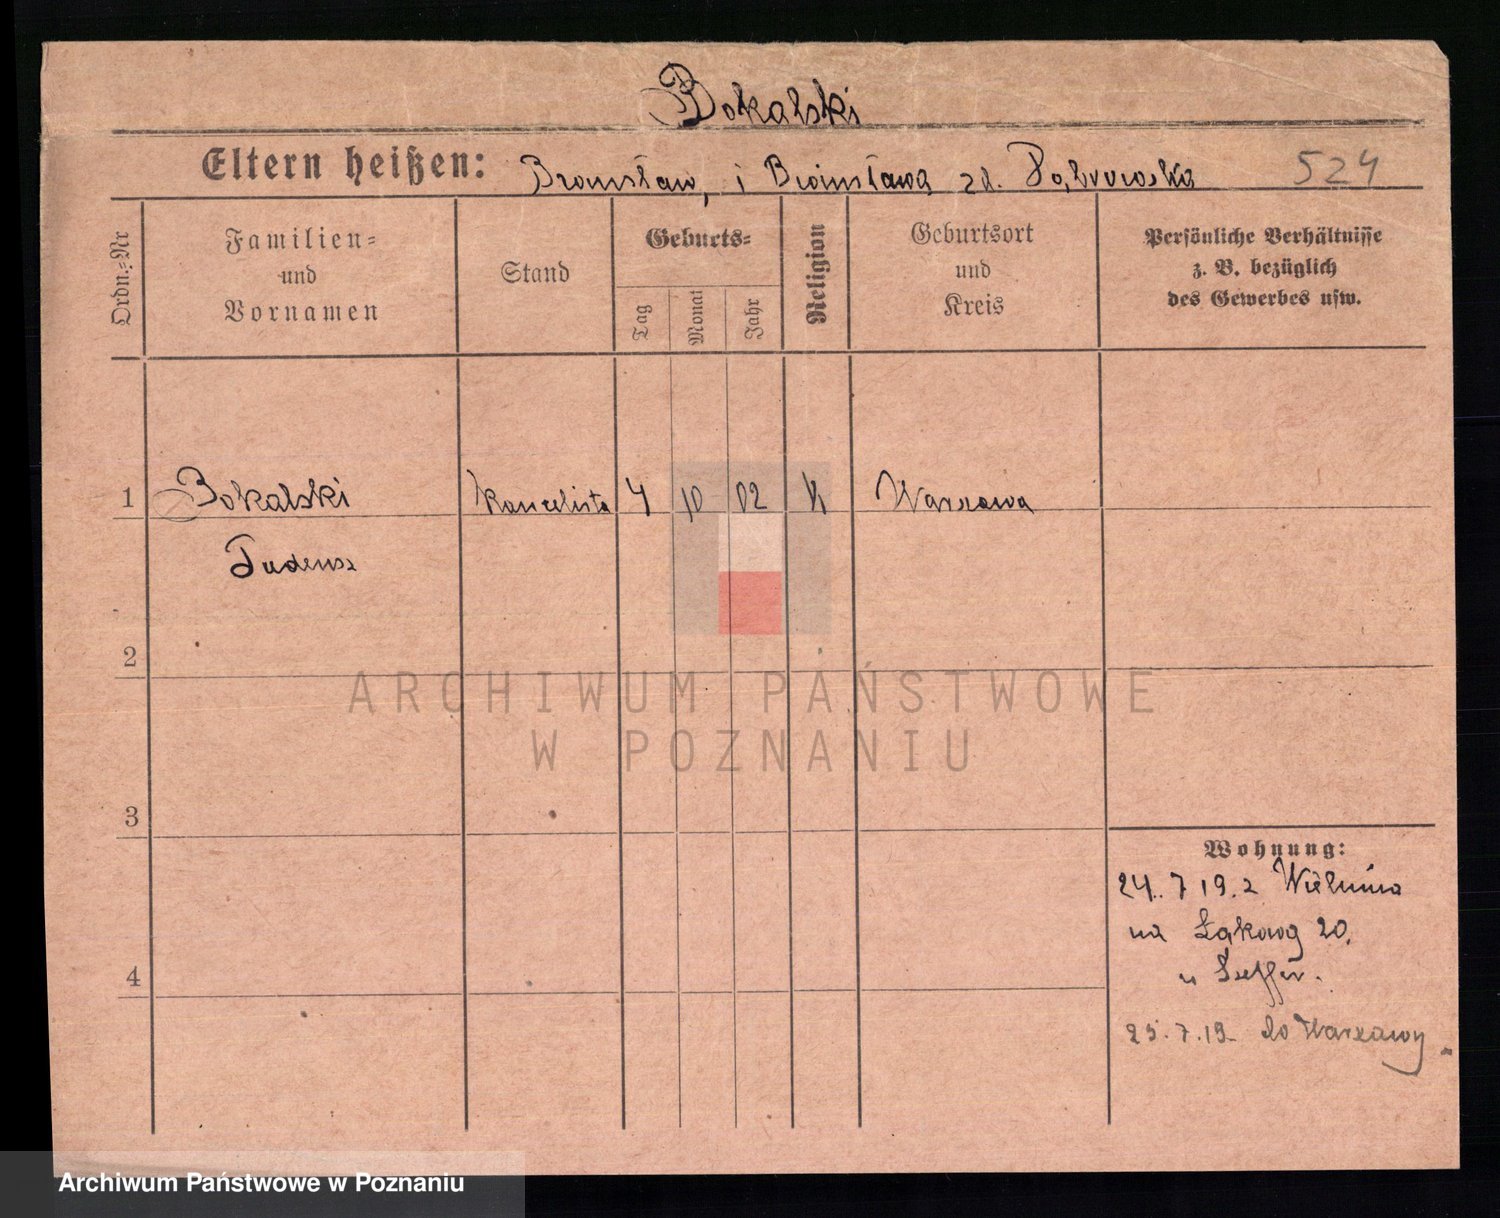 Bokalski
Eltern heißen: Bronisław, i Bronisława zd. Dąbrowska 524
Ordn.-Nr
Familien-
und
Vornamen
Stand
Geburts-
Tag
Monat
Jahr
Religion
Geburtsort
und
Kreis
Persönliche Verhältnisse
z. B. bezüglich
des Gewerbes usw.
1 Bokalski kancelista 4 10 02 K Warszawa
Tadeusz
2
3
4
Wohnung:
24.7 19. z Wielunia
na Łąkową 20.
u
25.7.19. do Warszawy
ARCHIWUM PAŃSTWOWE
W POZNANIU
Archiwum Państwowe w Poznaniu